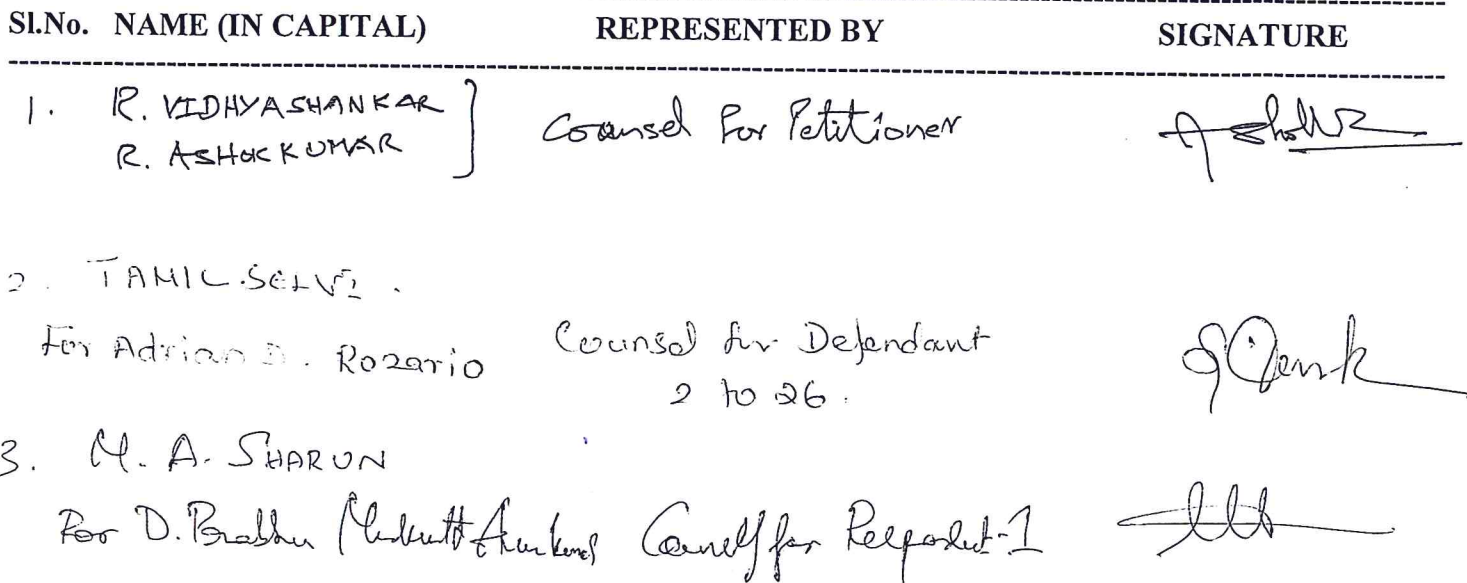 Sl.No. NAME (IN CAPITAL) REPRESENTED BY SIGNATURE
1. R. VIDHYASHANKAR
R. ASHOK KUMAR
Counsel For Petitioner
2. TAMIL.SELVI.
For Adrian D. Rozario
Counsel for Defendant
2 to 26.
3. M. A. SHARUN
For D. Prabhu Counsel for Respondent-1